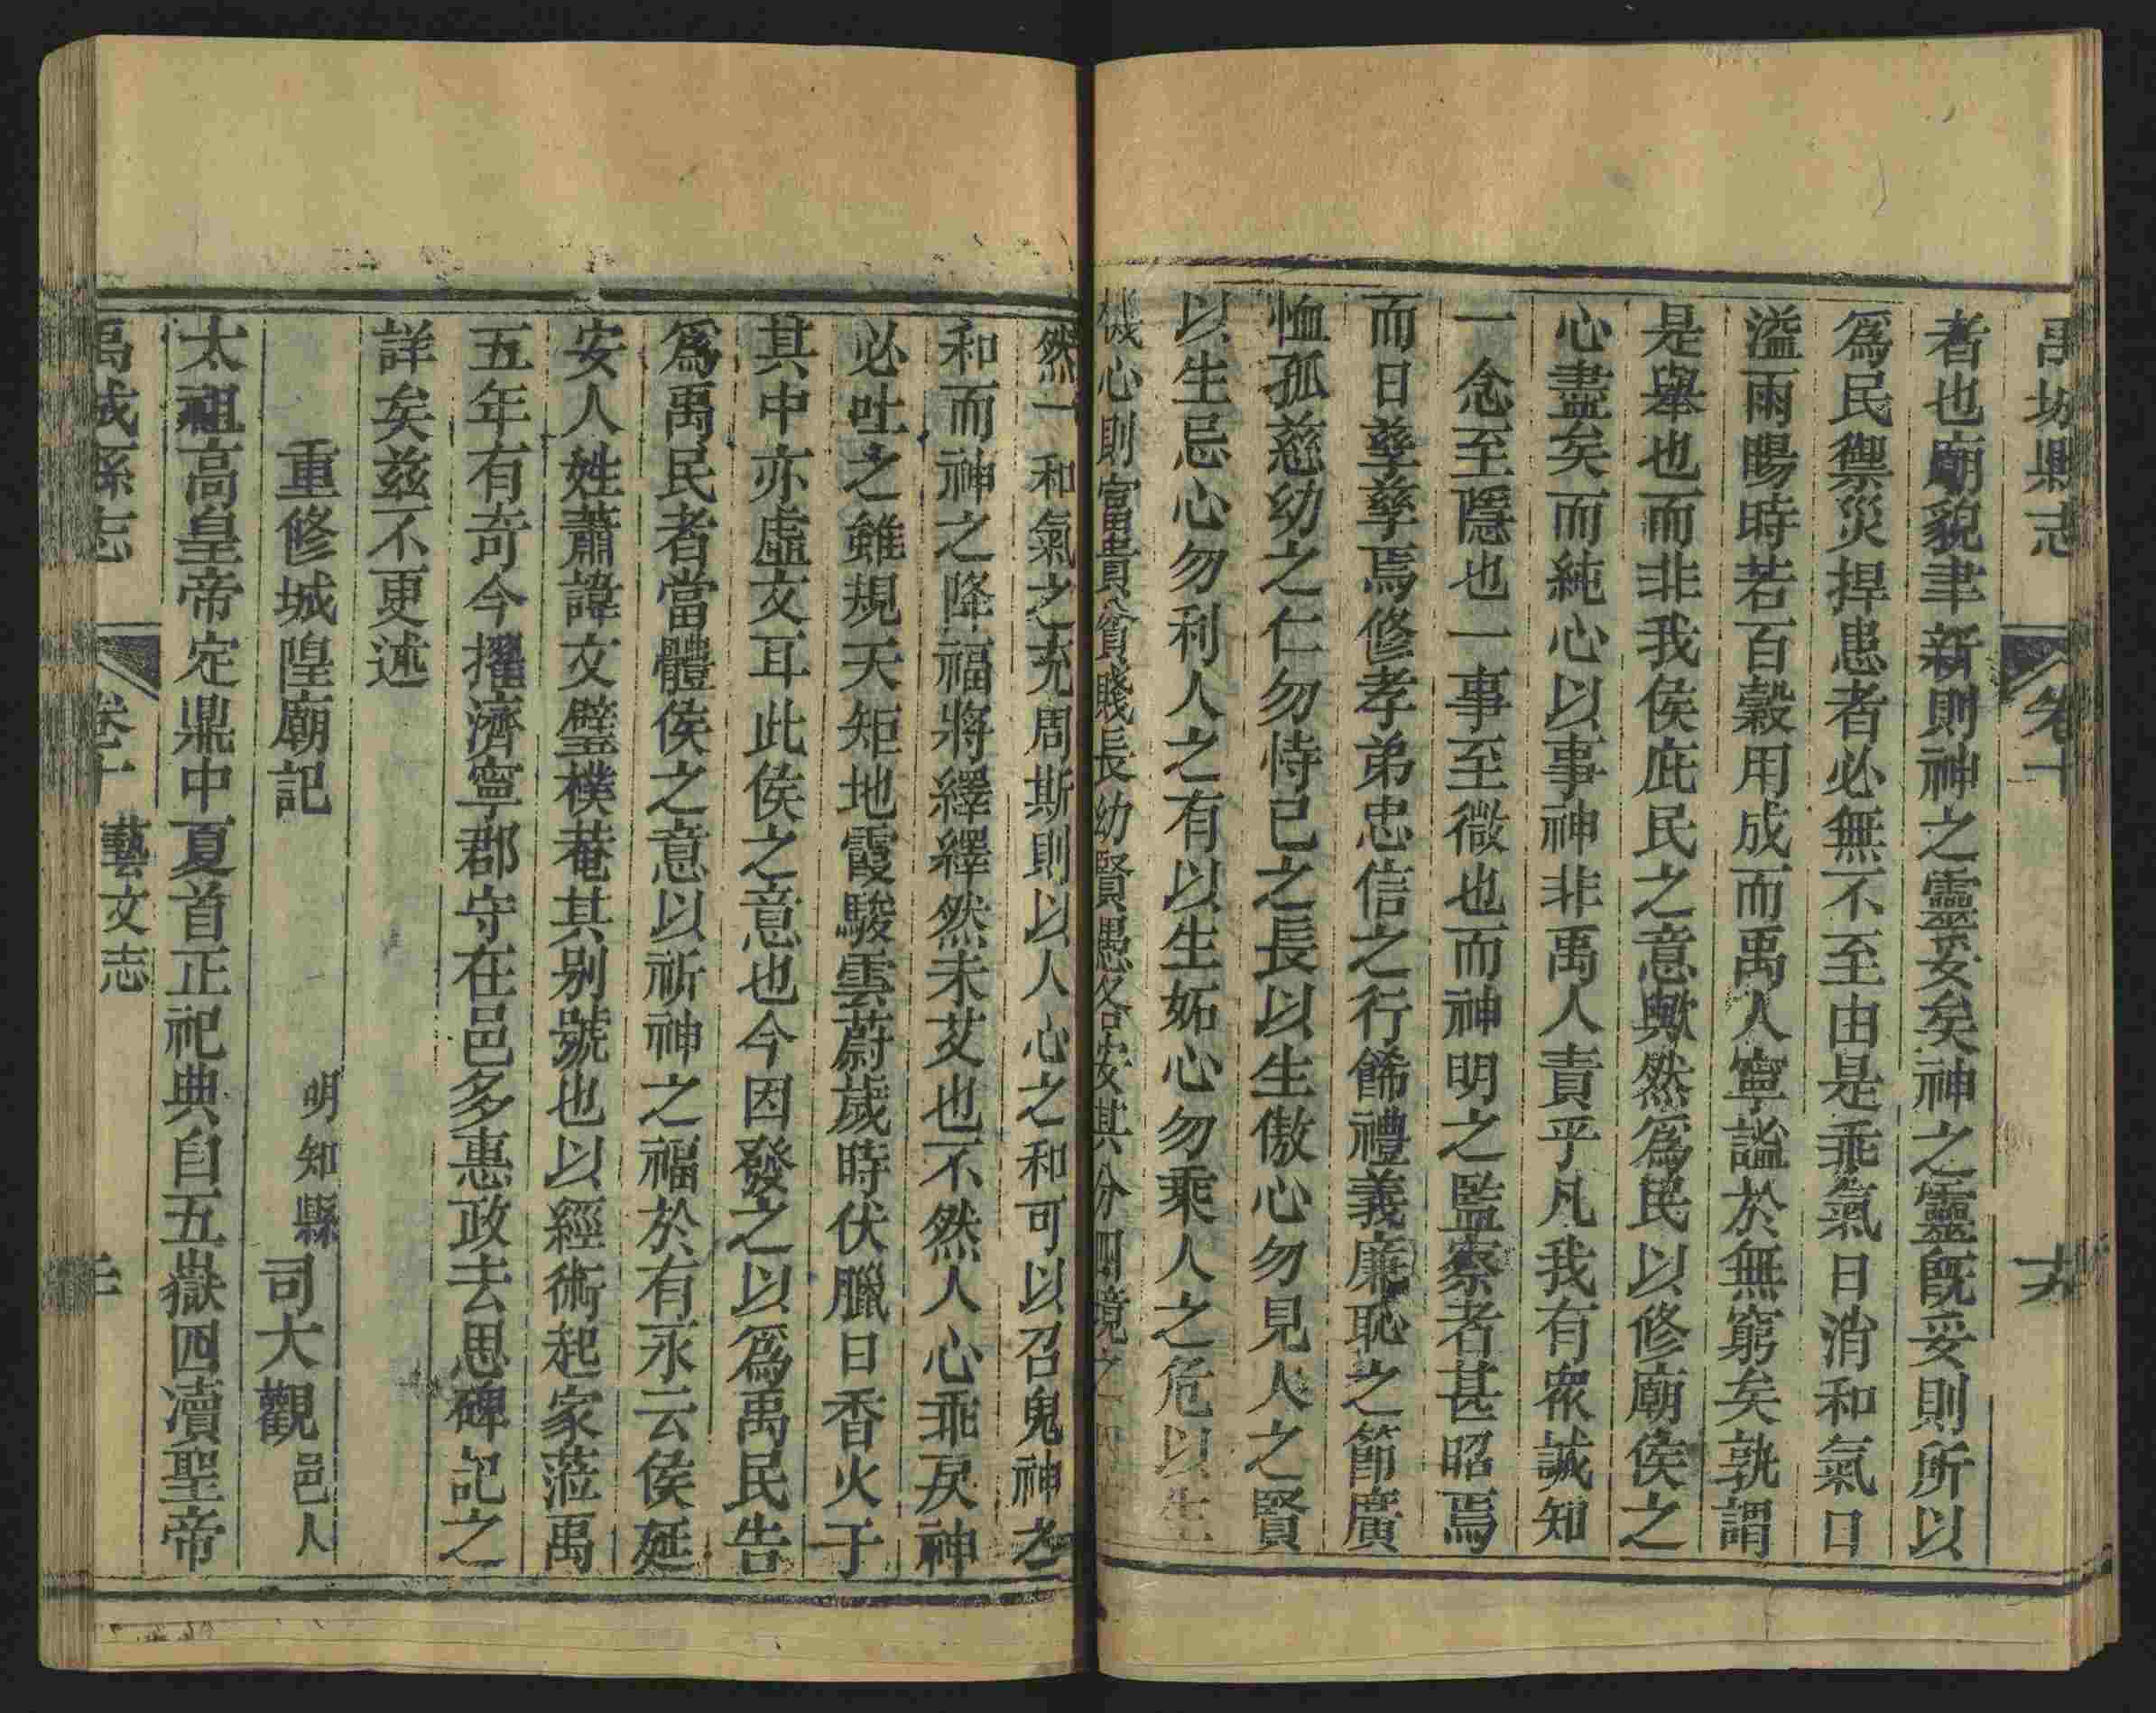 禹城縣志 卷十
者也廟貌聿新則神之靈妥矣神之靈旣妥則所以
爲民禦災捍患者必無不至由是乖氣日消和氣日
溢雨暘時若百穀用成而禹人寧謐於無窮矣孰謂
是舉也而非我侯庇民之意歟然爲民以修廟侯之
心盡矣而純心以事神非禹人責乎凡我有衆誠知
一念至隱也一事至微也而神明之監察者甚昭焉
而日孳孳焉修孝弟忠信之行餙禮義廉恥之節廣
恤孤慈幼之仁勿恃己之長以生傲心勿見人之賢
以生忌心勿利人之有以生妬心勿乘人之危以生
機心則富貴貧賤長幼賢愚各安其分四境之
然一和氣之充周斯則以人心之和可以召鬼神之
和而神之降福將繹繹然未艾也不然人心乖戾神
必吐之雖規天矩地霞駿雲蔚歲時伏臘日香火于
其中亦虛文耳此侯之意也今因發之以爲禹民告
爲禹民者當體侯之意以祈神之福於有永云侯延
安人姓蕭諱文璧樸菴其别號也以經術起家蒞禹
五年有奇今擢濟寧郡守在邑多惠政去思碑記之
詳矣兹不更述
重修城隍廟記 明知縣 司大觀 邑人
太祖高皇帝定鼎中夏首正祀典自五嶽四瀆聖帝
禹城縣志 卷十 藝文志